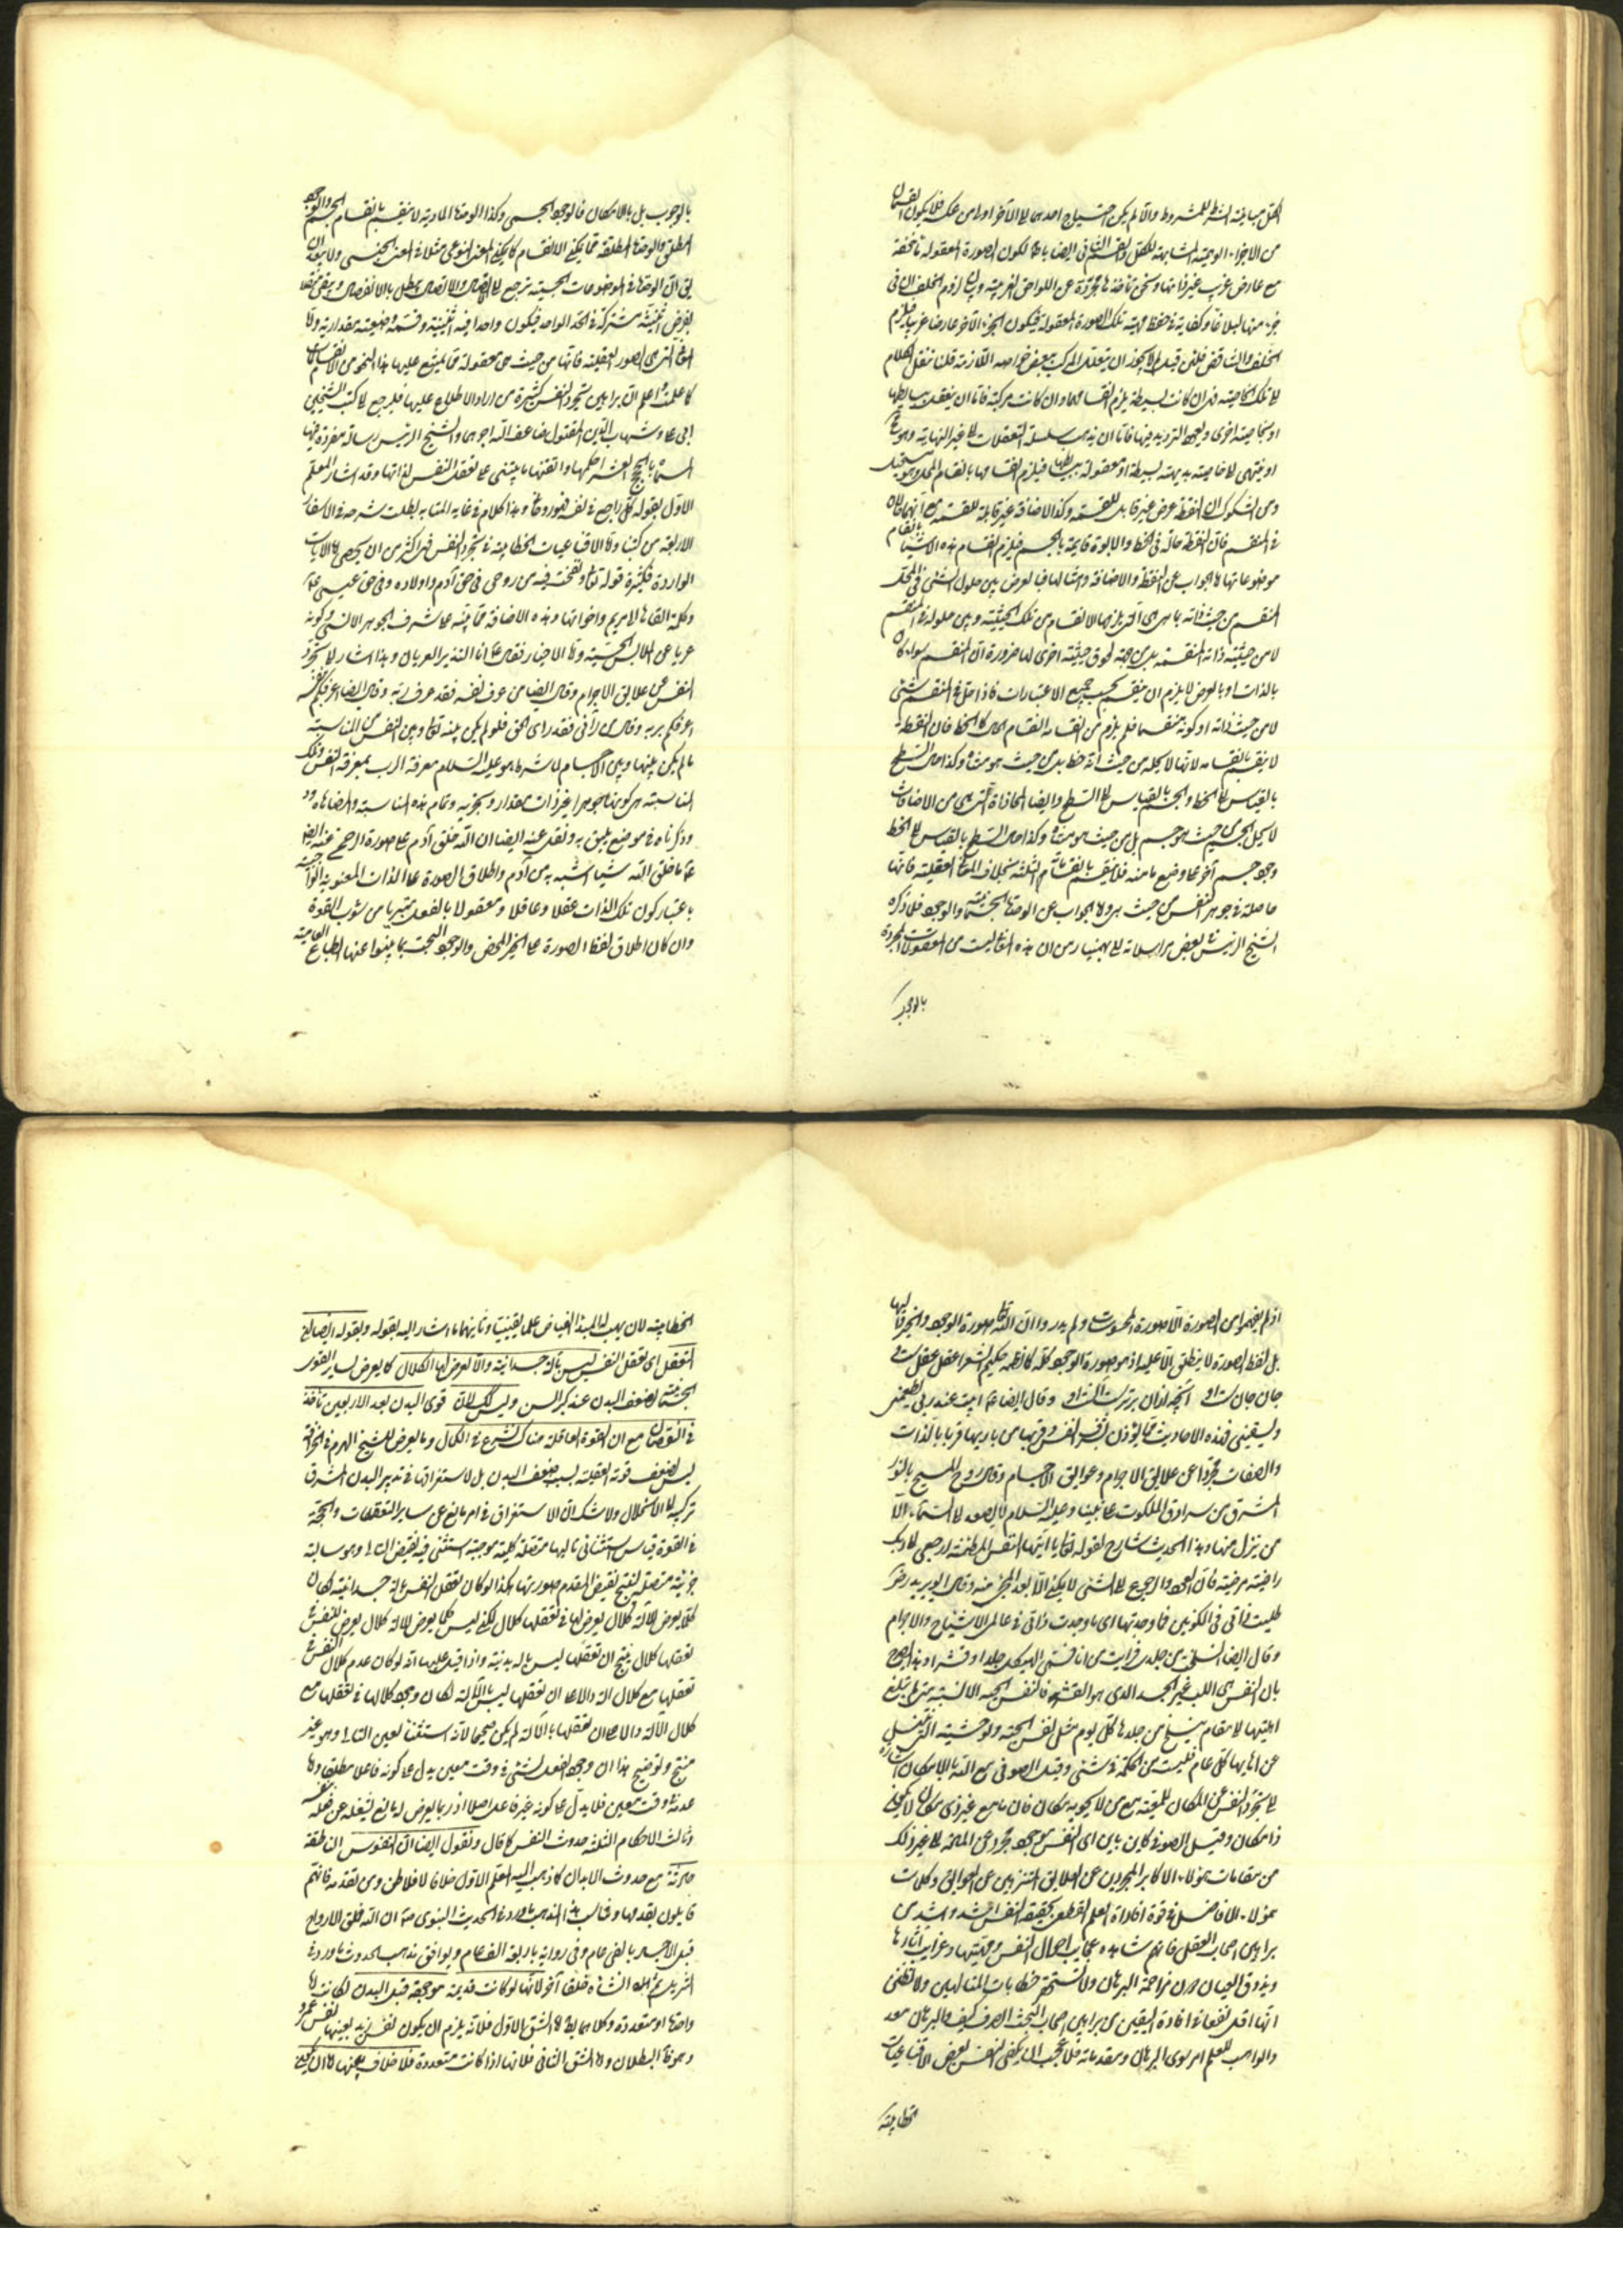 الكل مباينة الشرط للمشروط والا لم يكن احتياج احدهما الى الآخر اولى من عكسه فلا يكون القسمان
من الاجزاء الوهمية المشابهة للكل والقسم الثانى ايضا باطل لكون الصورة المعقولة مأخوذة
مع عارض غريب غير ذاتها ونحن أخذناها مجردة عن اللواحق الغريبة وايضا لزوم الخلف لان فى
جزء منها لبلاغا وكفاية فى حفظ مهية تلك الصورة المعقولة فيكون الجزء الآخر عارضا غريبا فيلزم
الخلف والتناقض فلئن قيل لم لا يجوز ان يتعقل المركب ببعض خواصه اللازمة قلنا ننقل الكلام
الى تلك الخاصية فهى ان كانت بسيطة يلزم انقسامها وان كانت مركبة فاما ان يتعقل ببسايطها
او بخاصية اخرى ويعود الترديد فيها فاما ان يذهب سلسلة التعقلات الى غير النهاية وهو مح
او ينتهى الى خاصية بديهة بسيطة او معقولة ببسايطها فيلزم انقسامها بانقسام المحل وهو مستحيل
ومن الشكوك ان النقطة عرض غير قابل للقسمة وكذا الاضافة غير قابلة للقسمة مع انهما حالان
فى المنقسم فان النقطة حالة فى الخط والابوة قايمة بالجسم فيلزم انقسام هذه الاشياء بانقسام
موضوعاتها والجواب عن النقطة والاضافة وامثالها بالعرض بين حلول الشئ فى المحل
المنقسم من حيث ذاته بما هى هى التى يلزمها الانقسام من تلك الحيثية وبين حلوله فى المنقسم
لا من حيثية ذاته المنقسمة بل من جهة لحوق حيثية اخرى لها ضرورة ان المنقسم سواء كان
بالذات او بالعرض لا يلزم ان ينقسم بحسب جميع الاعتبارات فاذا حل فى المنقسم شئ
لا من حيث ذاته او كونه منقسما فلم يلزم من انقسامه انقسام الحال كالخط فان النقطة
لا ينقسم بانقسامه لانها لا يحله من حيث انه خط بل من حيث هو متناه وكذا حال السطح
بالقياس الى الخط والجسم بالقياس الى السطح وايضا المحاذاة التى هى من الاضافات
لا يحل الجسم من حيث هو جسم بل من حيث هو متناه وكذا حال السطح بالقياس الى الخط
وجود جسم آخر على وضع ما منه فلا ينقسم بانقسام الثلثة بخلاف الصور العقلية فانها
حاصلة فى جوهر النفس من حيث هى هى واما الجواب عن الوحدة الجسمية والوجود فلما ذكره
الشيخ الرئيس فى بعض مراسلاته الى بهمنيار من ان هذه المعانى ليست من المعقولات المجردة
بالوجوب
بالوجوب بل بالامكان فالوجود الجسمى وكذا الوحدة المادية لا ينقسم بانقسام الجسم والوجود
المطلق والوحدة المطلقة مما يمكن الانقسام كما يمكن المعنى النوعى مثلا فى المعنى الجنسى ولا يبعد ان
يق ان الوحدة فى الموضوعات الجسمية ترجع الى الاتصال والاتصال يبطل بالانفصال وينقسم
بفرض اثنينية مشتركة فى الحد الواحد فيكون واحدا فيه اثنينية وقسمة وضعية مقدارية واما
المعانى التى هى الصور العقلية فانها من حيث هى معقولة مما يمتنع عليها هذا النحو من الانقسامات
كما علمت واعلم ان براهين تجرد النفس كثيرة من اراد الاطلاع عليها فليرجع الى كتب الشيخين
ابى على وشهاب الدين المقتول ضاعف الله اجورهما وللشيخ الرئيس رسالة مفردة فيها
المسماة بالحجج العشر احكمها واتقنها ما يبتنى على تعقل النفس لذاتها وقد اشار المعلم
الاول بقوله كل راجع فى نفسه فهو روحانى وهذا كلام فى غاية المتانة ليطلب شرحه فى الاسفار
الاربعة من كتبنا واما الاقناعيات الخطابية فى تجرد النفس فهى اكثر من ان يحصى اما الآيات
الواردة فكثيرة قوله تعالى ونفخت فيه من روحى فى حق آدم واولاده وفى حق عيسى ع م
وكلمته القاها الى مريم واخواتها وهذه الاضافة مما ينبه على شرف الجوهر الانسى وكونه
عريا عن الملابس الحسية واما الاخبار فقال ع م انا النذير العريان وهذا اشارة الى تجرد
النفس عن علايق الاجرام وقال ايضا من عرف نفسه فقد عرف ربه وقال ايضا اعرفكم بنفسه
اعرفكم بربه وقال من رآنى فقد رأى الحق فلو لم يكن بينه تعالى وبين النفس من المناسبة
ما لم يكن بينها وبين الاجسام لما شرط هو عليه السلام معرفة الرب بمعرفة النفس وتلك
المناسبة هى كونها جوهرا غير ذات مقدار وتجزية وتمام هذه المناسبة والمضاهاة
وذكرناه فى موضع يليق به ونقل عنه ايضا ان الله خلق آدم على صورة الرحمن وعنه ايضا
ع م ما خلق الله شيئا اشبه به من آدم واطلاق الصورة على الذات المعنوية الواجبية
باعتبار كون تلك الذات عقلا وعاقلا ومعقولا بالفعل متبريا من شوب القوة
وان كان اطلاق لفظ الصورة على الخير المحض والوجود البحت مما ينبوا عنها الطباع العامية
اذ لم يفهموا من الصورة الا صورة المحسوسات ولم يدروا ان الله تعالى صورة الوجود والخير كله
بل لفظ الصورة لا ينطلق الا عليه اذ هو صورة الوجود كله كما نظمه حكيم الشعراء عقل عقل است
جان جان است او آنچه زان برتر است آنست او وقال ايضا ع م ابيت عند ربى يطعمنى
ويسقينى فهذه الاحاديث مما يؤذن بشرف النفس وقربها من باريها قربا بالذات
والصفات مجردا عن علايق الاجرام وعوايق الاجسام وقال روح الله المسيح بالنور
المشرق من سرادق الملكوت على نبينا وعليه السلام لا يصعد الى السماء الا
من نزل منها وهذا الحديث شارح لقوله تعالى يا ايتها النفس المطمئنة ارجعى الى ربك
راضية مرضية فان العود والرجوع الى الشئ لا يمكن الا بعد المجئ منه وقال ابو يزيد رض
طلبت ذاتى فى الكونين فما وجدتها اى ما وجدت ذاتى فى عالمى الاشباح والاجرام
وقال ايضا انسلخت من جلدى فرأيت من انا فسمى الهيكل جلدا وقشرا وهذا تصريح
بان النفس هى اللب غير الجسد الذى هو القشر فالنفس الحية الانسية
اهليتها الى مقام ينسلخ من جلدها كل يوم مثل نفس الحية والوحشية التى ينسلخ
عن اهابها كل عام فليست من الحكمة فى شئ وقيل الصوفى مع الله بلا مكان اشارة
الى تجرد النفس عن المكان للمعية مع من لا يحويه مكان فان ما مع غير ذى مكان لا يكون
ذا مكان وقيل الصوفى كاين باين اى النفس موجود مجرد عن المادة الى غير ذلك
من مقامات هؤلاء الاكابر المجردين عن العلايق المتنزهين عن العوايق وكلمات
هؤلاء الافاضل فى قوة افادة العلم القطعى بحقيقة النفس اشد واشد من
براهين اصحاب العقل فانهم شاهدوا عجايب احوال النفس ومهيتها وغرايب آثارها
وبذوق العيان دون مزاحمة البرهان ولا تستحقر خطابات المتألهين ولا تظنن
انها اقل نفعا فى افادة اليقين من براهين اصحاب البحث الصرف كيف والبرهان معد
والواهب للعلم امر سوى البرهان ومقدماته فلا عجب ان يكفى للنفس بعض الاقناعيات
الخطابية
الخطابية لان يهب له المبدأ الفياض علما يقينيا وثانيهما ما اشار اليه بقوله وبقوله ايضا ان
التعقل اى تعقل النفس ليس بآلة جسدانية والا لعرض لها الكلال كما يعرض لساير القوى
الجسمانية لضعف البدن عند كبر السن وليس كذلك لان قوى البدن بعد الاربعين تأخذ
فى النقصان مع ان القوة العاقلة هناك تشرع فى الكمال وما يعرض للشيخ الهرم من الخرافة
ليس لضعف قوته العقلية بسبب ضعف البدن بل لاستغراقها فى تدبير البدن المشرف
تركيبه الى الانحلال ولا شك ان الاستغراق فى امر مانع عن ساير التعقلات والحجة
فى القوة قياس استثنائى تاليها متصلة كلية موجبة استثنى فيه نقيض التالى وهو سالبة
جزئية متصلة لينتج نقيض المقدم صورتها هكذا لو كان تعقل النفس بآلة جسدانية لكان
كلما يعرض للآلة كلال يعرض لها فى تعقلها كلال لكن ليس كلما يعرض للآلة كلال يعرض للنفس فى
تعقلها كلال ينتج ان تعقلها ليس بآلة بدنية واذا قيل عليها انه لو كان عدم كلال النفس فى
تعقلها مع كلال الآلة دالا على ان تعقلها ليس بالآلة لكان وجود كلالها فى تعقلها مع
كلال الآلة دالا على ان تعقلها بالآلة لم يكن صحيحا لانه استثناء لعين التالى وهو غير
منتج وتوضيح هذا ان وجود الفعل لشئ فى وقت معين يدل على كونه فاعلا مطلقا واما
عدمه فى وقت معين فلا يدل على كونه غير فاعل اصلا اذ ربما يعرض له مانع يشغله عن فعله بنفسه
وثالث الاحكام الثلثة حدوث النفس كما قال ونقول ايضا ان النفوس الناطقة
حادثة مع حدوث الابدان كما ذهب اليه المعلم الاول خلافا لافلاطن ومن تقدمه فانهم
قايلون بقدمها وفى لب هذا المذهب ما ورد فى الحديث النبوى ص م ان الله خلق الارواح
قبل الاجساد بالفى عام وفى رواية باربعة الف عام ويوافق مذهب الحدوث ما ورد فى
التنزيل ثم انشأناه خلقا آخر لانها لو كانت قديمة موجودة قبل البدن لكانت اما
واحدة او متعددة وكلاهما بط اما الشق الاول فلانه يلزم ان يكون نفس زيد بعينها نفس عمرو
وهو ظاهر البطلان واما الشق الثانى فلانها اذا كانت متعددة فلا خلاف بينها اما ان يكون